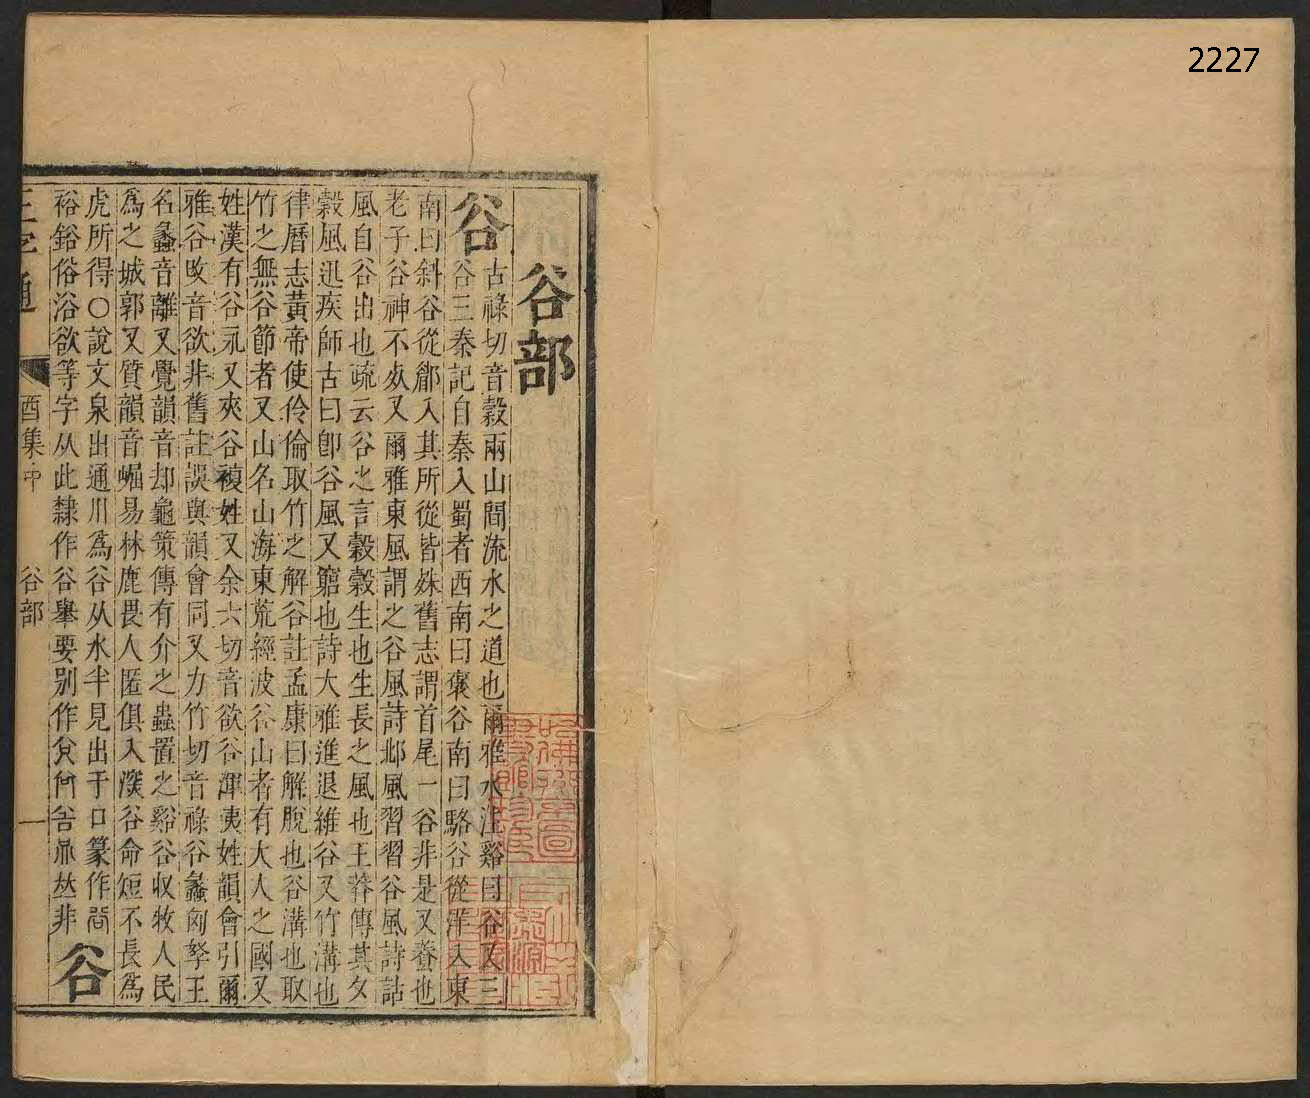 2227
谷部
谷古祿切音穀兩山間流水之道也爾雅水注谿曰谷又三
谷三秦記自秦入蜀者西南曰褒谷南曰駱谷從洋入東
南曰斜谷從鄜入其所從皆殊舊志謂首尾一谷非是又養也
老子谷神不死又爾雅東風謂之谷風詩邶風習習谷風詩詁
風自谷出也疏云谷之言穀穀生也生長之風也王莽傳其夕
穀風迅疾師古曰卽谷風又窮也詩大雅進退維谷又竹溝也
律曆志黃帝使伶倫取竹之解谷註孟康曰解脫也谷溝也取
竹之無谷節者又山名山海東荒經波谷山者有大人之國又
姓漢有谷永又夾谷複姓又余六切音欲谷渾夷姓韻會引爾
雅谷䟆音欲非舊註誤與韻會同又力竹切音祿谷蠡匈奴王
名蠡音離又覺韻音却龜策傳有介之蟲置之谿谷収牧人民
爲之城郭又質韻音崛易林鹿畏人匿俱入深谷命短不長爲
虎所得○說文泉出通川爲谷从水半見出于口篆作
裕鋊俗浴欲等字从此隸作谷舉要别作
非谷
正字通
酉集中
谷部
一